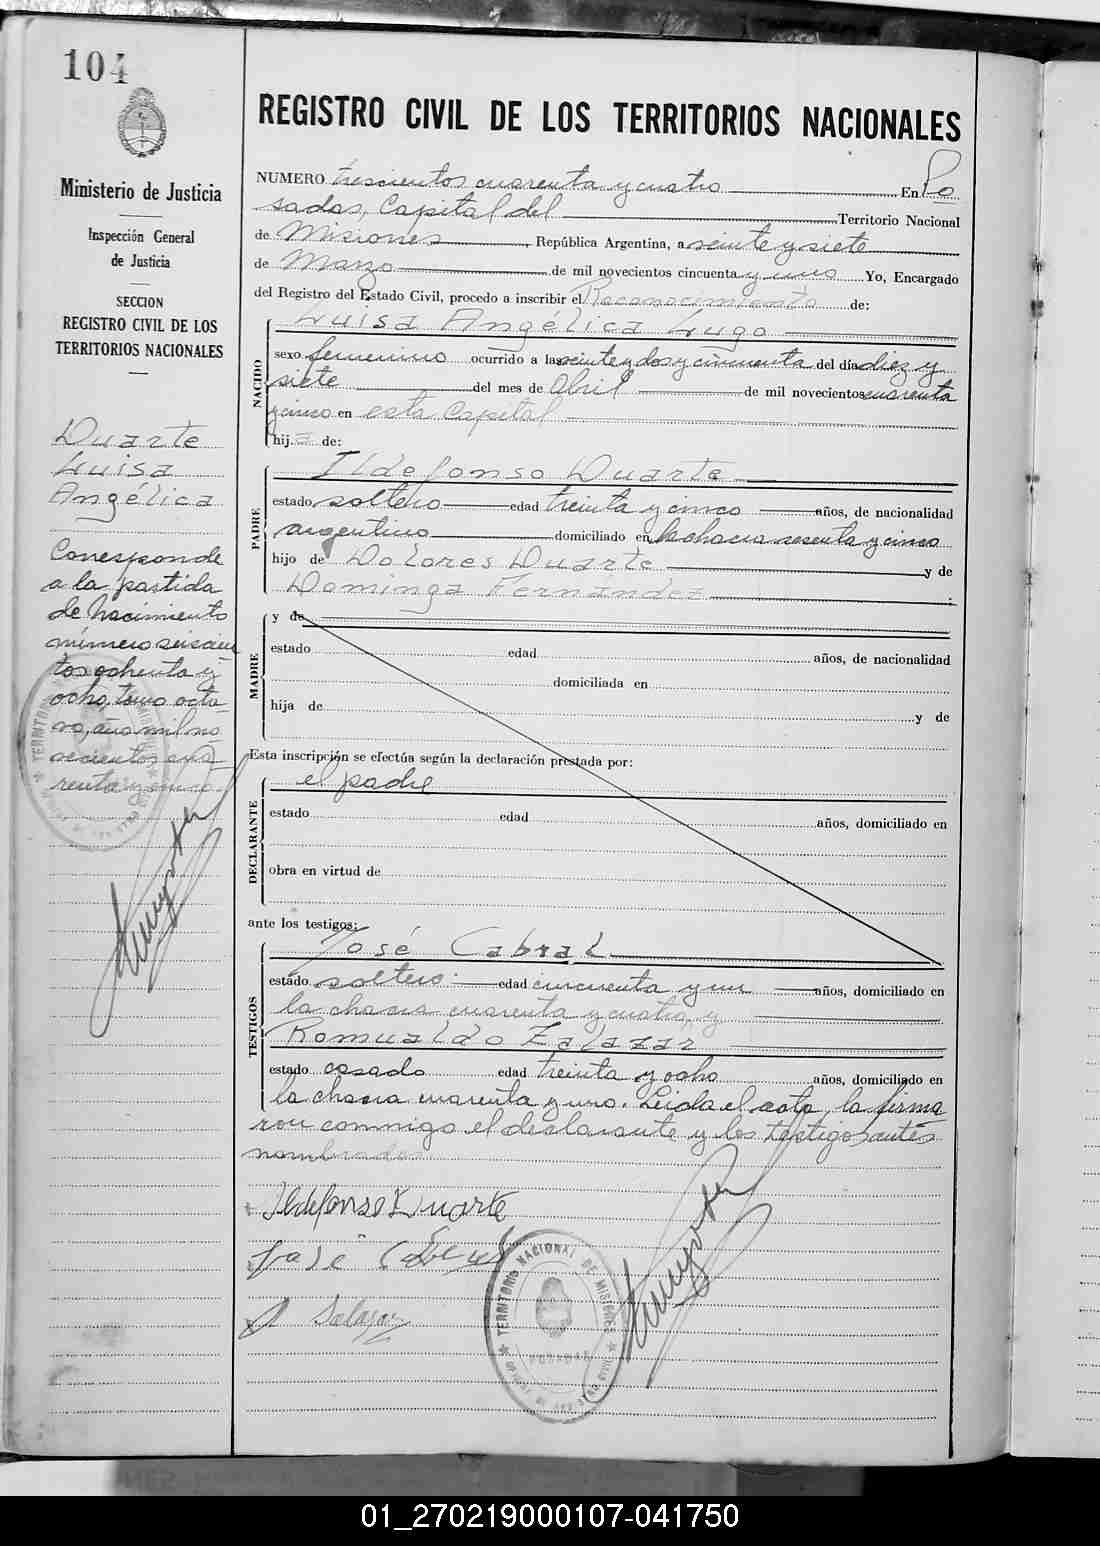 104
Ministerio de Justicia
Inspección General
de Justicia
SECCION
REGISTRO CIVIL DE LOS
TERRITORIOS NACIONALES
Duarte
Luisa
Angélica
Corresponde
a la partida
de Nacimiento
número seiscien
tos ochenta y
ocho, tomo octa-
vo, año mil no-
vecientos cua-
renta y cinco.
REGISTRO CIVIL DE LOS TERRITORIOS NACIONALES
NUMERO trescientos cuarenta y cuatro En Po
sadas, Capital del Territorio Nacional
de Misiones, República Argentina, a veinte y siete
de Marzo de mil novecientos cincuenta y uno Yo, Encargado
del Registro del Estado Civil, procedo a inscribir el Reconocimiento de:
Luisa Angélica Lugo
NACIDO
sexo femenino ocurrido a las veinte y dos y cincuenta del día diez y
siete del mes de Abril de mil novecientos cuarenta
y cinco en esta Capital
hija de:
PADRE
Ildefonso Duarte
estado soltero edad treinta y cinco años, de nacionalidad
argentino domiciliado en la chacra sesenta y cinco
hijo de Dolores Duarte y de
Dominga Fernández ;
MADRE
y de
estado edad años, de nacionalidad
domiciliada en
hija de y de
Esta inscripción se efectúa según la declaración prestada por:
DECLARANTE
el padre
estado edad años, domiciliado en
obra en virtud de
ante los testigos:
TESTIGOS
José Cabral
estado soltero edad cincuenta y un años, domiciliado en
la chacra cuarenta y cuatro, y
Romualdo Zalazar
estado casado edad treinta y ocho años, domiciliado en
la chacra cuarenta y uno. Leida el acta, la firma
ron conmigo el declarante y los testigos antes
nombrados
Ildefonso Duarte
José Cabral
R Salazar
TERRITORIO NACIONAL DE MISIONES
POSADAS
01_270219000107-041750